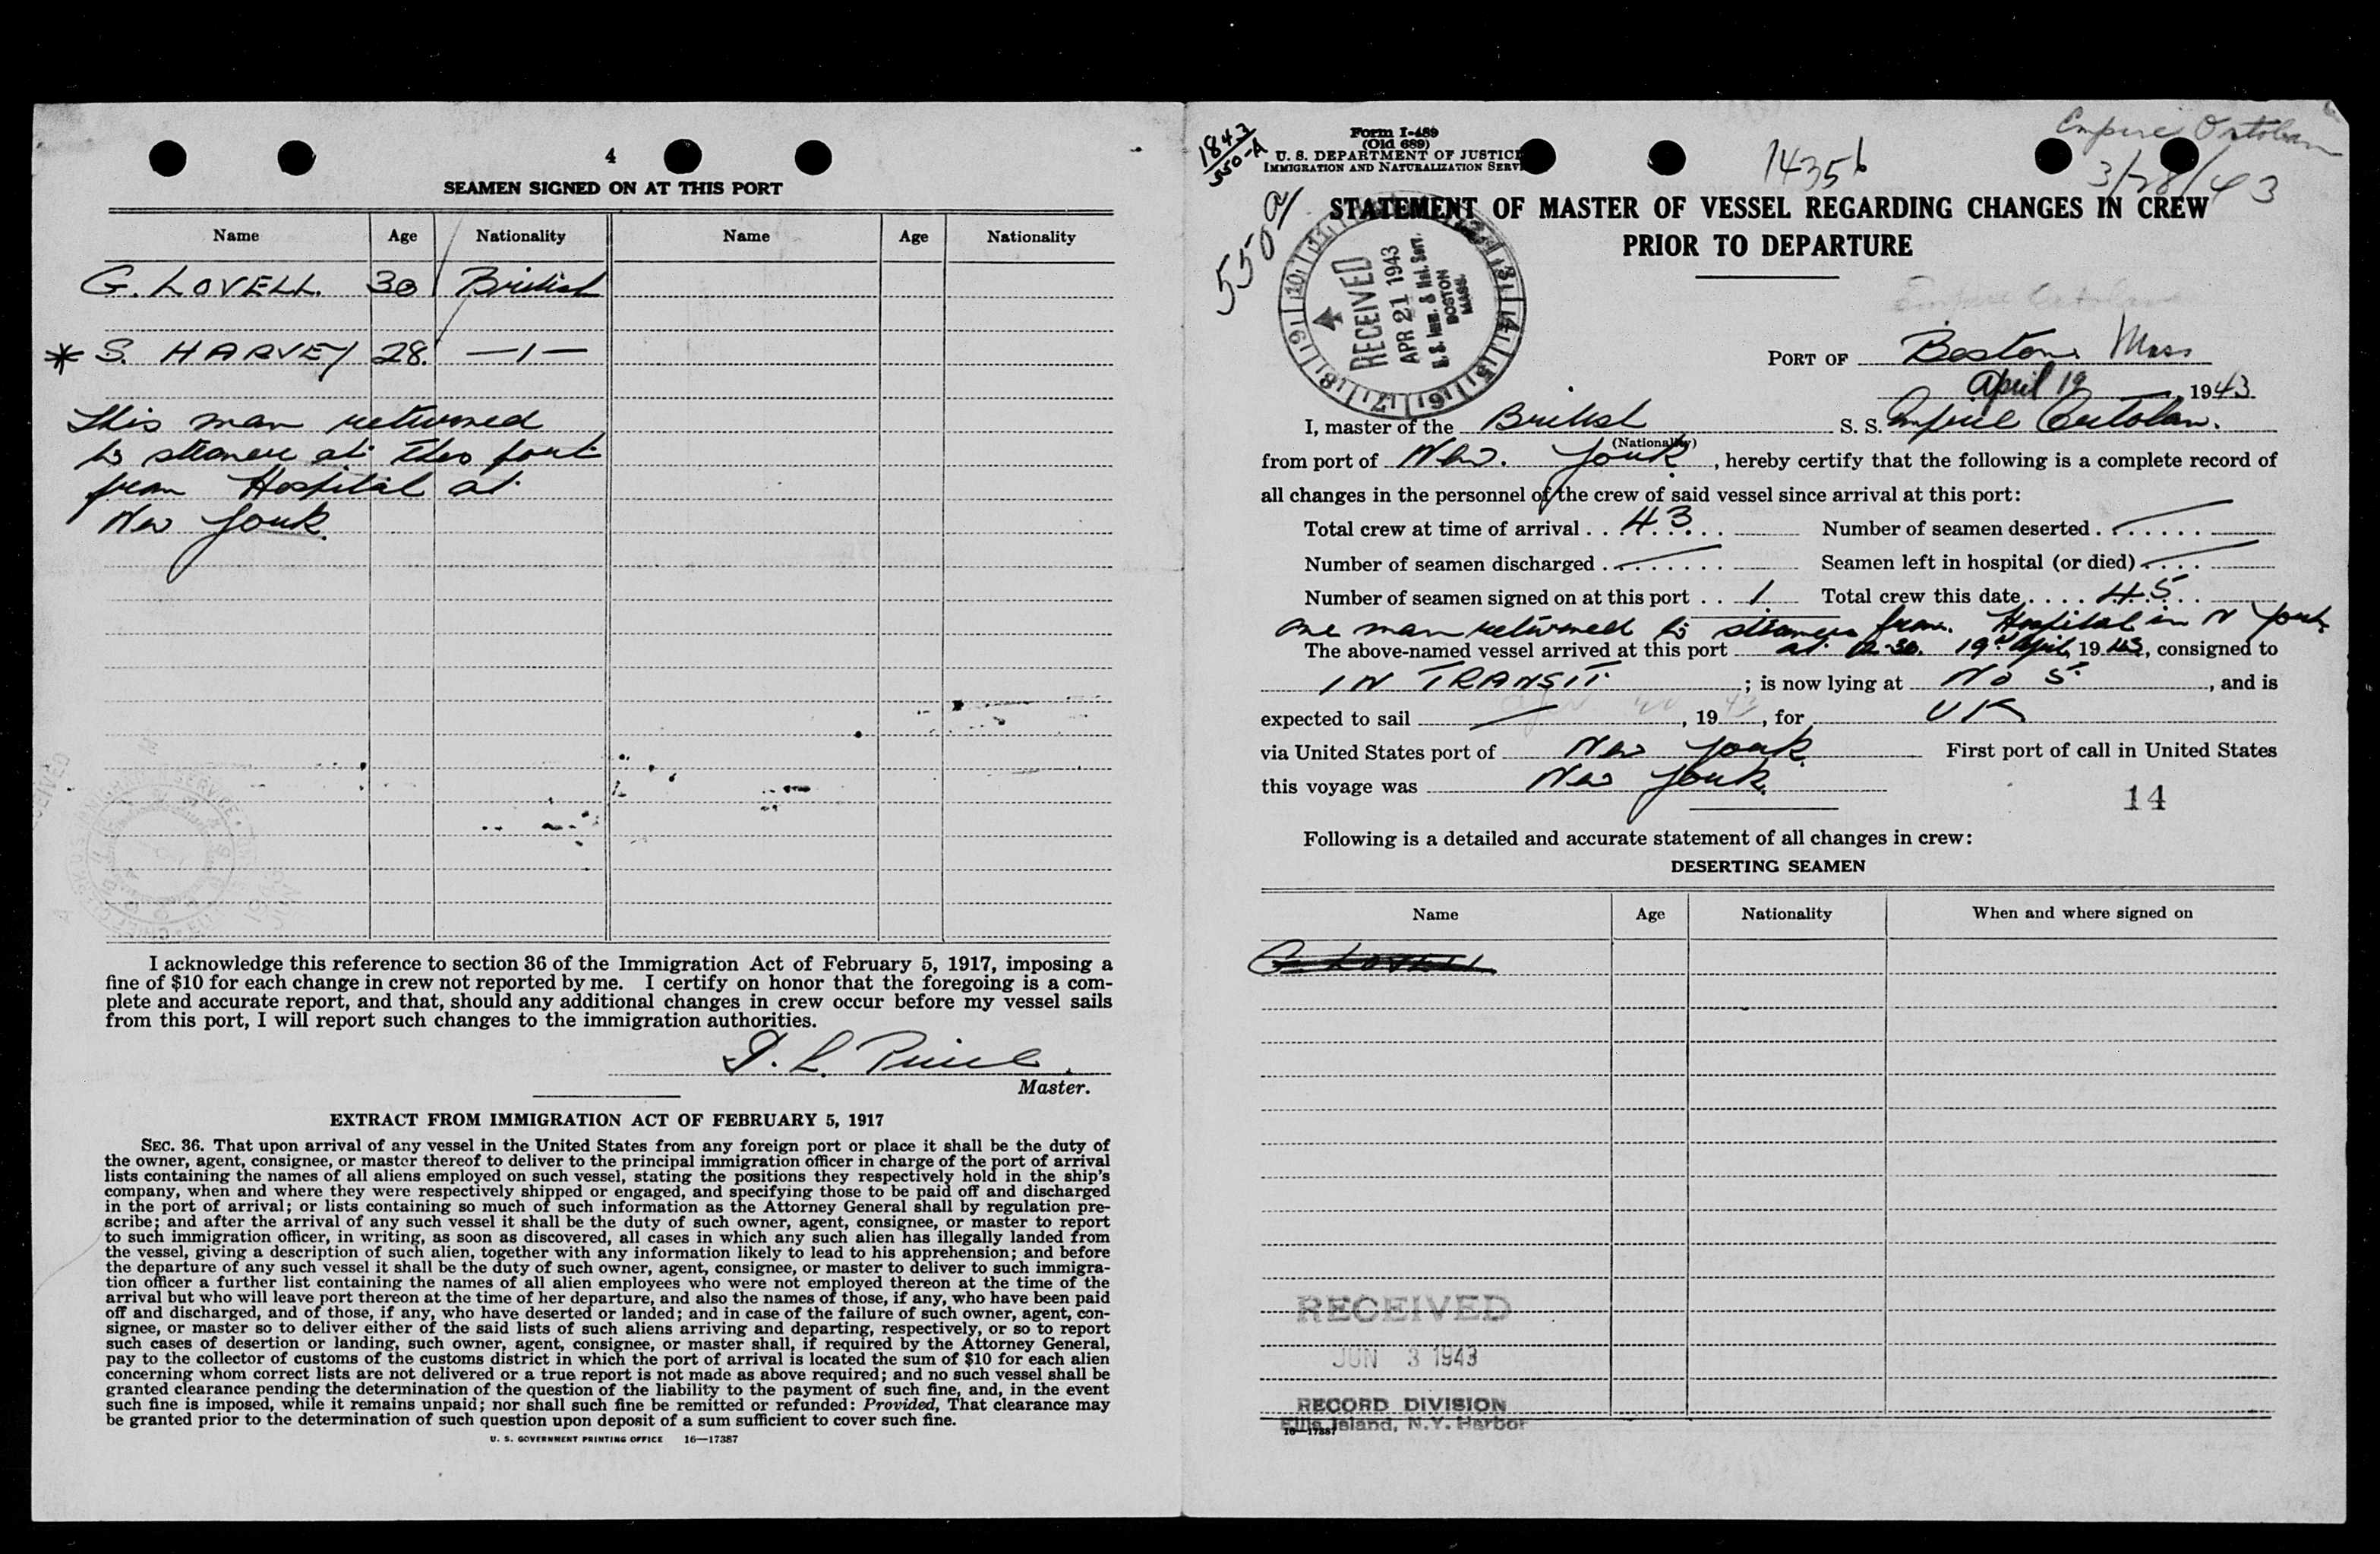 4
SEAMEN SIGNED ON AT THIS PORT
Name Age Nationality Name Age Nationality
G. LOVELL. 30 British
* S. HARVEY 28. —1—
This man returned
to steamer at this port
from Hospital at
New York.
I acknowledge this reference to section 36 of the Immigration Act of February 5, 1917, imposing a
fine of $10 for each change in crew not reported by me. I certify on honor that the foregoing is a com-
plete and accurate report, and that, should any additional changes in crew occur before my vessel sails
from this port, I will report such changes to the immigration authorities.
Master.
EXTRACT FROM IMMIGRATION ACT OF FEBRUARY 5, 1917
SEC. 36. That upon arrival of any vessel in the United States from any foreign port or place it shall be the duty of
the owner, agent, consignee, or master thereof to deliver to the principal immigration officer in charge of the port of arrival
lists containing the names of all aliens employed on such vessel, stating the positions they respectively hold in the ship's
company, when and where they were respectively shipped or engaged, and specifying those to be paid off and discharged
in the port of arrival; or lists containing so much of such information as the Attorney General shall by regulation pre-
scribe; and after the arrival of any such vessel it shall be the duty of such owner, agent, consignee, or master to report
to such immigration officer, in writing, as soon as discovered, all cases in which any such alien has illegally landed from
the vessel, giving a description of such alien, together with any information likely to lead to his apprehension; and before
the departure of any such vessel it shall be the duty of such owner, agent, consignee, or master to deliver to such immigra-
tion officer a further list containing the names of all alien employees who were not employed thereon at the time of the
arrival but who will leave port thereon at the time of her departure, and also the names of those, if any, who have been paid
off and discharged, and of those, if any, who have deserted or landed; and in case of the failure of such owner, agent, con-
signee, or master so to deliver either of the said lists of such aliens arriving and departing, respectively, or so to report
such cases of desertion or landing, such owner, agent, consignee, or master shall, if required by the Attorney General,
pay to the collector of customs of the customs district in which the port of arrival is located the sum of $10 for each alien
concerning whom correct lists are not delivered or a true report is not made as above required; and no such vessel shall be
granted clearance pending the determination of the question of the liability to the payment of such fine, and, in the event
such fine is imposed, while it remains unpaid; nor shall such fine be remitted or refunded: Provided, That clearance may
be granted prior to the determination of such question upon deposit of a sum sufficient to cover such fine.
U. S. GOVERNMENT PRINTING OFFICE 16—17387
1843
550-A
550a
Form I-489
(Old 689)
U. S. DEPARTMENT OF JUSTICE
IMMIGRATION AND NATURALIZATION SERV
14356
Empire Ortolan
3/28/43
STATEMENT OF MASTER OF VESSEL REGARDING CHANGES IN CREW
PRIOR TO DEPARTURE
RECEIVED
APR 21 1943
U. S. Imm. & Nat. Serv.
BOSTON
MASS.
PORT OF Boston. Mass
April 19, 1943
I, master of the British S. S. Empire Ortolan.
(Nationality)
from port of New York, hereby certify that the following is a complete record of
all changes in the personnel of the crew of said vessel since arrival at this port:
Total crew at time of arrival . . 43 Number of seamen deserted . —
Number of seamen discharged . — Seamen left in hospital (or died) —
Number of seamen signed on at this port . . 1. Total crew this date . . . . 45
One man returned to steamer from Hospital in N York
The above-named vessel arrived at this port at 12-30. 19th April, 1943, consigned to
IN TRANSIT; is now lying at No 5, and is
expected to sail —, 1943, for UK
via United States port of New York First port of call in United States
this voyage was New York.
14
Following is a detailed and accurate statement of all changes in crew:
DESERTING SEAMEN
Name Age Nationality When and where signed on
G. LOVELL
RECEIVED
JUN 3 1943
RECORD DIVISION
Ellis Island, N.Y. Harbor
16—17387